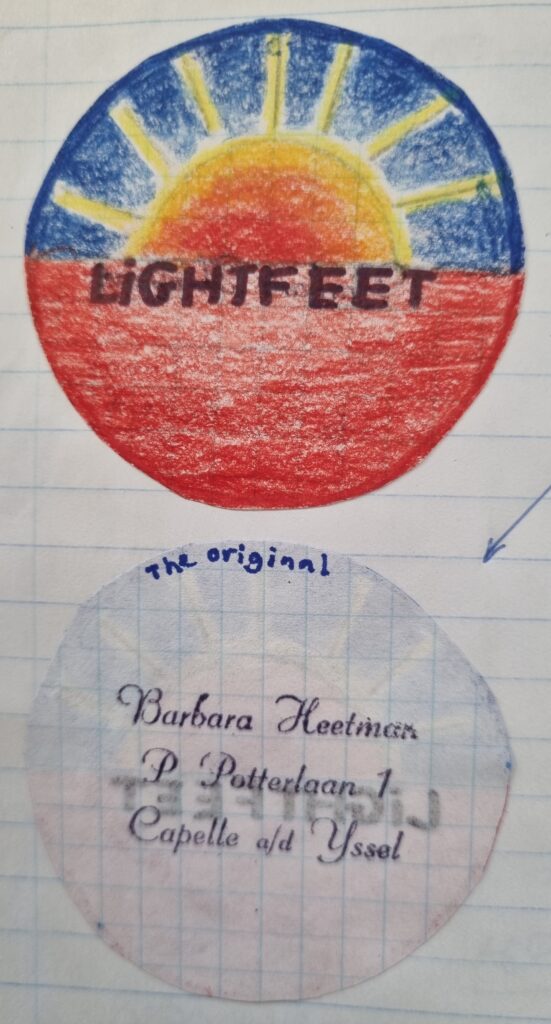 LiGHTFEET
The original
Barbara Heetman
P. Potterlaan 1
Capelle a/d Yssel
LiGHTFEET